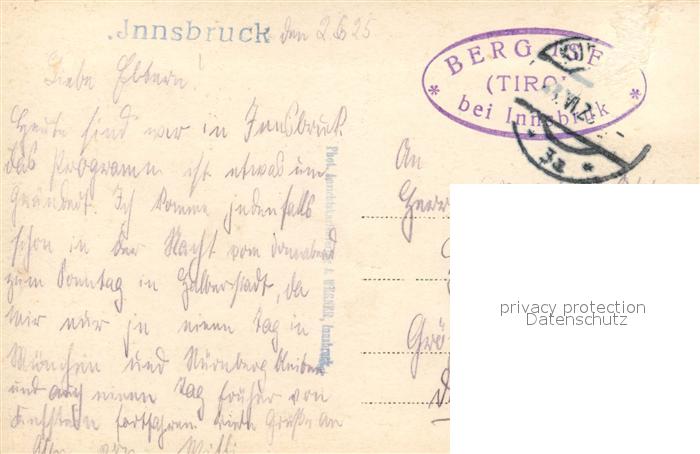 Innsbruck den 2.6.25
Liebe Eltern!
Heute sind wir in Innsbruck.
das Programm ist etwas um
geändert. Ich komme jedenfalls
schon in der Nacht vom Sonnabend
zum Sonntag in Halberstadt, da
wir nur je einen Tag in
München und Nürnberg bleiben
und auch einen Tag früher von
fortfahren. Viele Grüße an
Willi
BERG ISEL
(TIROL)
bei Innsbruck
3a
An
Herrn
privacy protection
Datenschutz